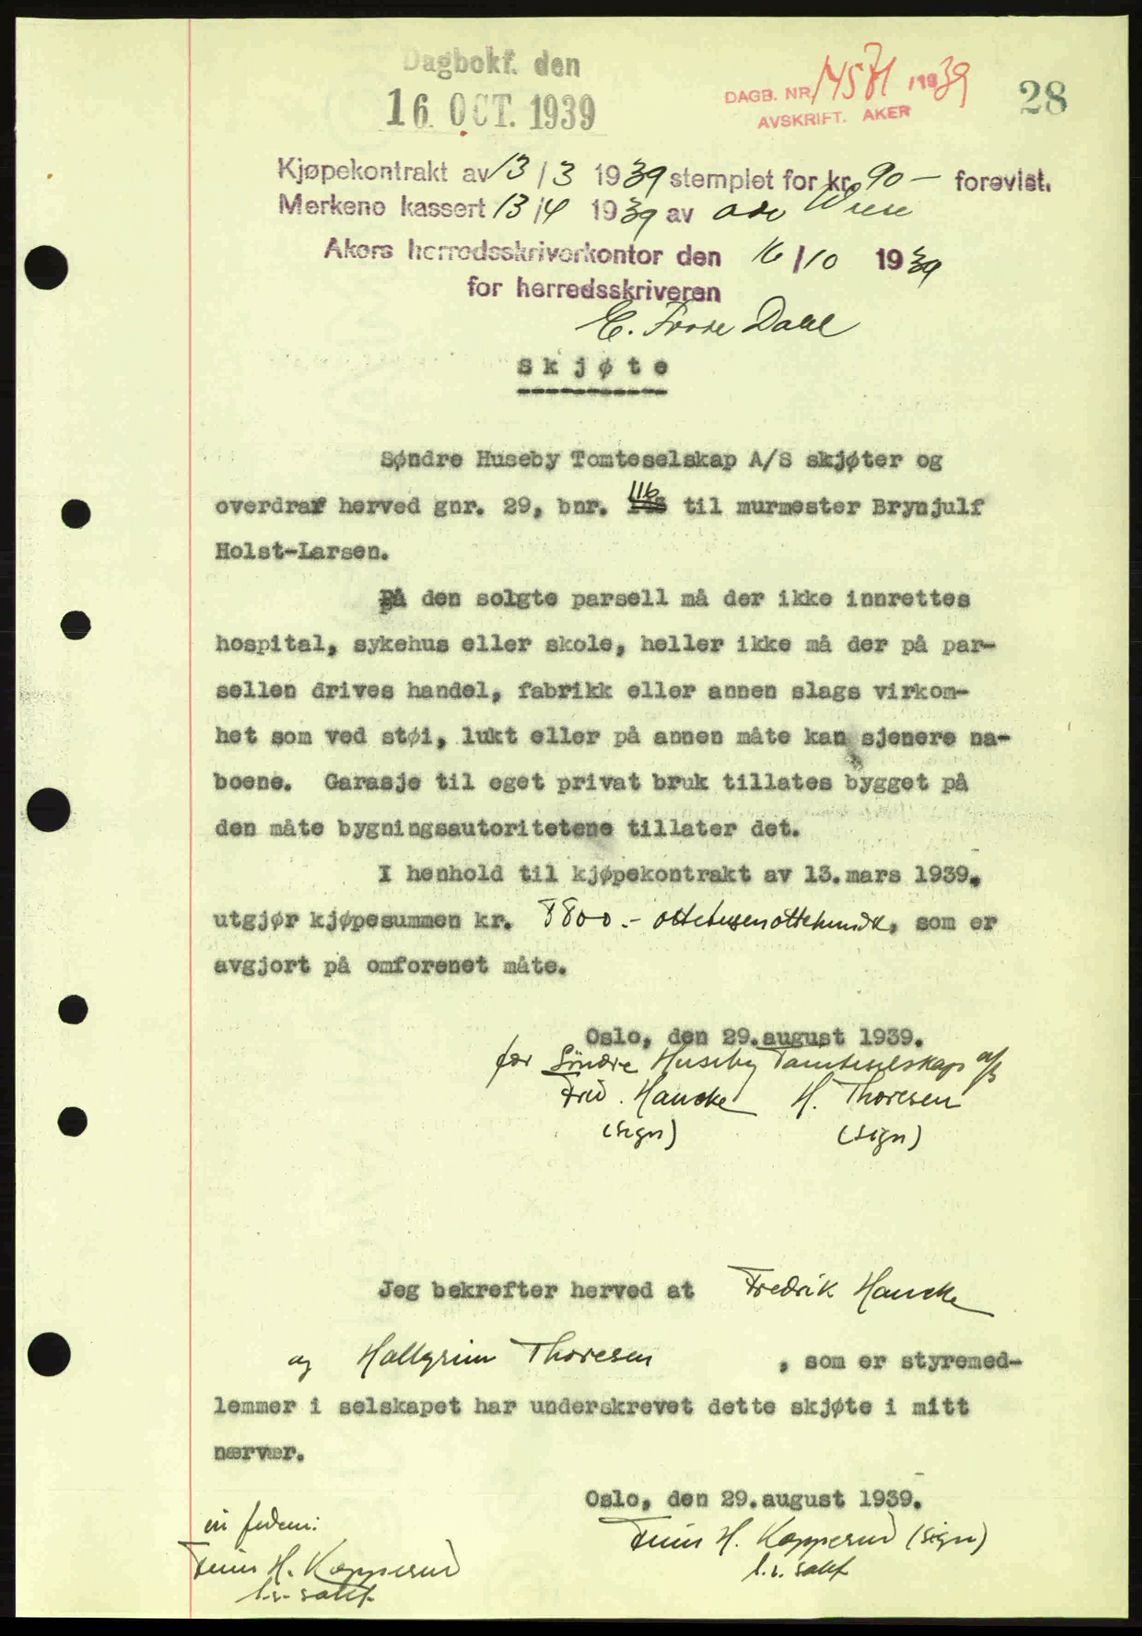 Dagbokf. den
16. OCT. 1939
DAGB. NR. 14571 1939
AVSKRIFT. AKER
28
Kjøpekontrakt av 13/3 1939 stemplet for kr. 90 — forevist.
Merkene kassert 13/4 1939 av adv Wiese
Akers herredsskriverkontor den 16/10 1939
for herredsskriveren
E. Frose Dahl
Skjøte
Søndre Huseby Tomteselskap A/S skjøter og
overdrar herved gnr. 29, bnr. 116 til murmester Brynjulf
Holst-Larsen.
På den solgte parsell må der ikke innrettes
hospital, sykehus eller skole, heller ikke må der på par-
sellen drives handel, fabrikk eller annen slags virkom-
het som ved støi, lukt eller på annen måte kan sjenere na-
boene. Garasje til eget privat bruk tillates bygget på
den måte bygningsautoritetene tillater det.
I henhold til kjøpekontrakt av 13.mars 1939.
utgjør kjøpesummen kr. 8800.- ottetusenottehundr, som er
avgjort på omforenet måte.
Oslo, den 29.august 1939.
for Søndre Huseby Tomteselskap a/s
Fred. Hancke H. Thoresen
(sign) (sign)
Jeg bekrefter herved at Fredrik Hancke
og Hallgrim Thoresen, som er styremed-
lemmer i selskapet har underskrevet dette skjøte i mitt
nærvær.
Oslo, den 29.august 1939.
Finn H. Kopperud (sign)
l.r. sakf.
Finn H. Kopperud
l.r. sakf.